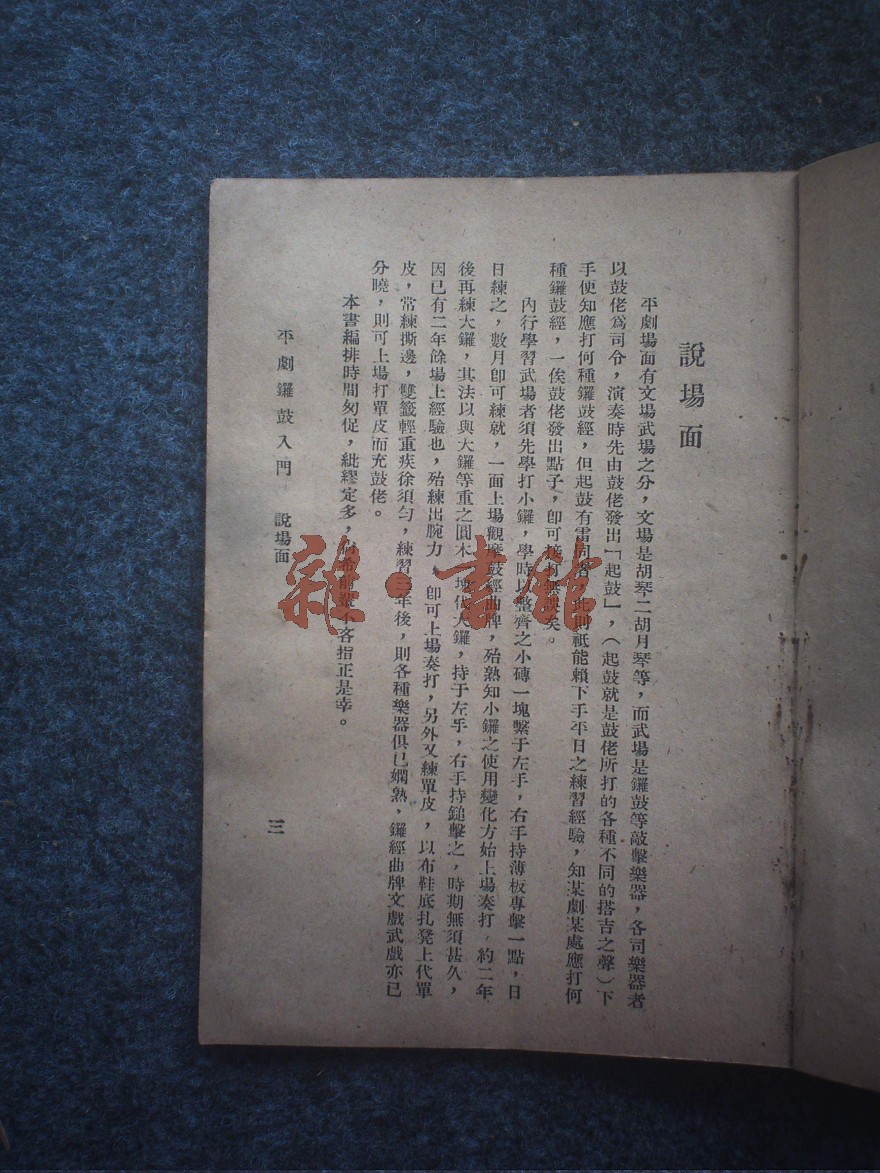 說場面
平劇場面有文場武場之分，文場是胡琴二胡月琴等，而武場是鑼鼓等敲擊樂器，各司樂器者
以鼓佬爲司令，演奏時先由鼓佬發出「起鼓」，（起鼓就是鼓佬所打的各種不同的搭吉之聲）下
手便知應打何種鑼鼓經，但起鼓有雷同者，此則祗能賴下手平日之練習經驗，知某劇某處應打何
種鑼鼓經，一俟鼓佬發出點子，卽可接打無誤矣。
內行學習武場者須先學打小鑼，學時以整齊之小磚一塊繫于左手，右手持薄板專擊一點，日
日練之，數月卽可練就，一面上場觀摩鼓經曲牌，殆熟知小鑼之使用變化方始上場奏打，約二年
後再練大鑼，其法以與大鑼等重之圓木一塊代大鑼，持于左手，右手持鎚擊之，時期無須甚久，
因已有二年餘場上經驗也，殆練出腕力，卽可上場奏打，另外又練單皮，以布鞋底扎凳上代單
皮，常練撕邊，雙籤輕重疾徐須勻，練習三年後，則各種樂器俱已嫻熟，鑼經曲牌文戲武戲亦已
分曉，則可上場打單皮而充鼓佬。
本書編排時間匆促，紕繆定多，尚希前輩不吝指正是幸。
平劇鑼鼓入門　說場面
三
雜·書館